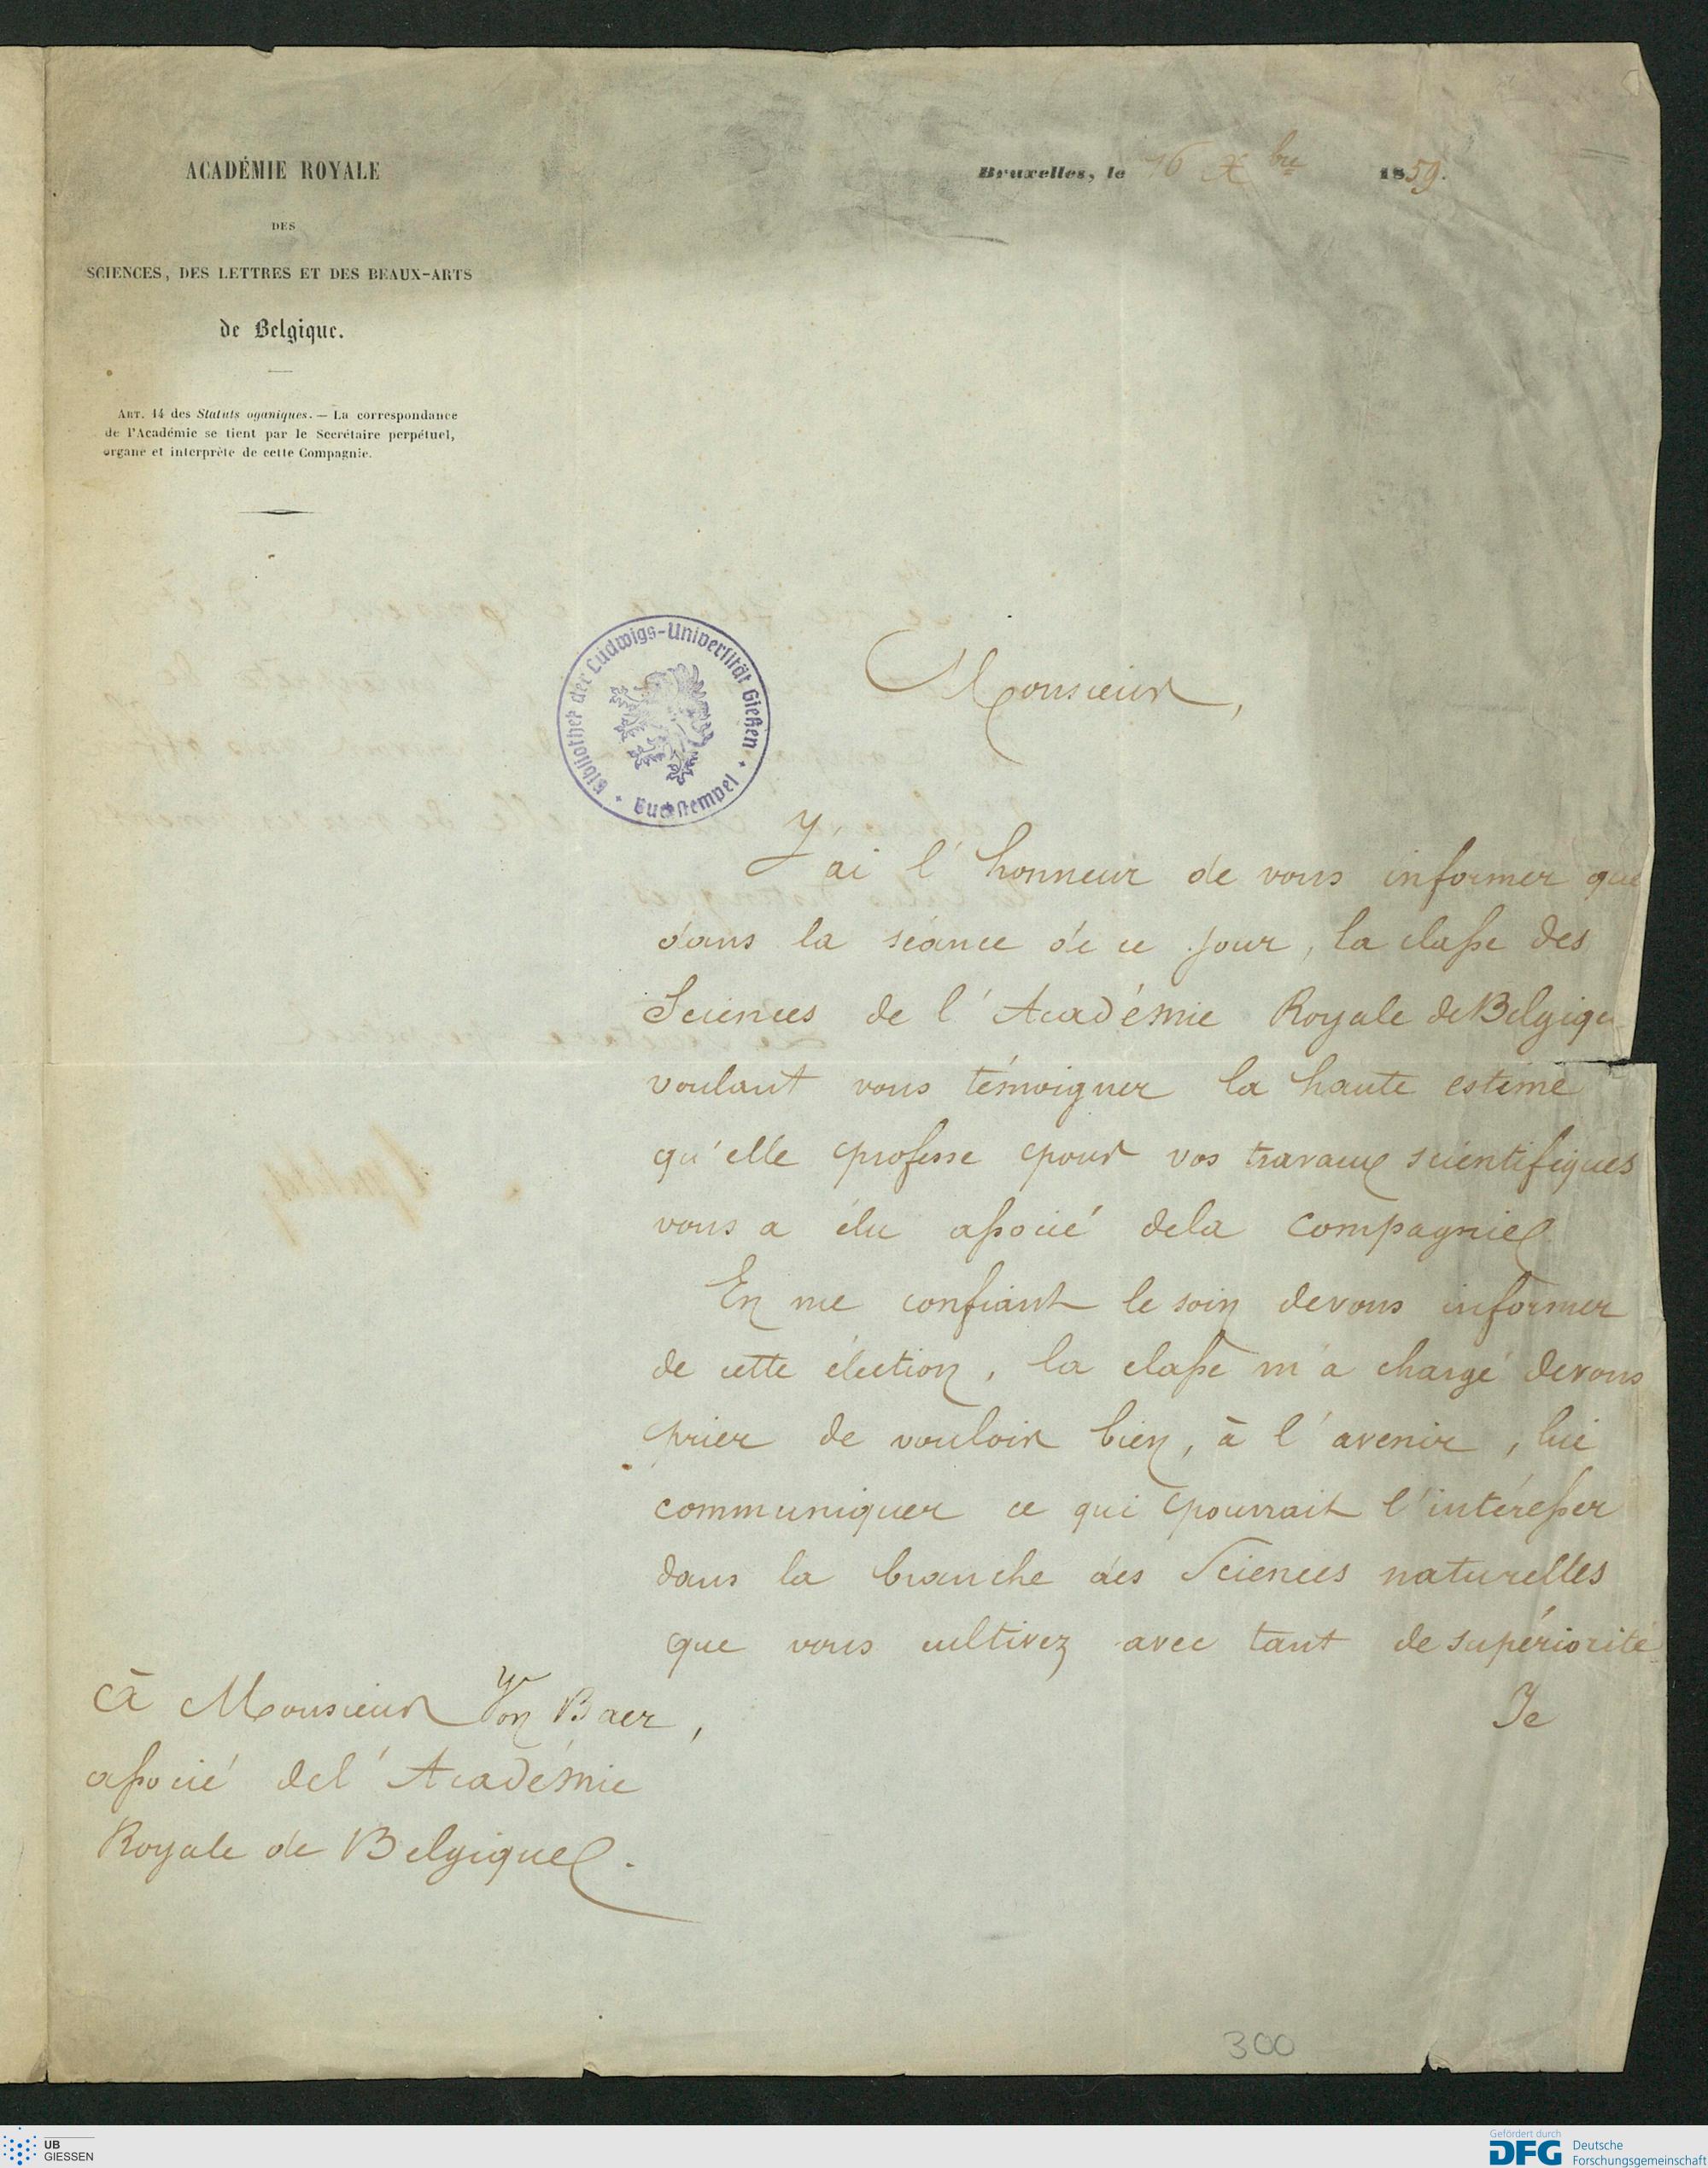 ACADÉMIE ROYALE
DES
SCIENCES, DES LETTRES ET DES BEAUX-ARTS
de Belgique.
ART. 14 des Statuts oganiques. — La correspondance
de l'Académie se tient par le Secrétaire perpétuel,
organe et interprète de cette Compagnie.
Bruxelles, le 16 Xbre 1859.
Bibliothek der Ludwigs-Universität Gießen
Buchstempel
Monsieur,
J'ai l'honneur de vous informer que
dans la séance de ce jour, la classe des
Sciences de l'Académie Royale de Belgique
voulant vous témoigner la haute estime
qu'elle professe pour vos travaux scientifiques
vous a élu associé de la Compagnie
En me confiant le soin de vous informer
de cette élection, la classe m'a chargé de vous
prier de vouloir bien, à l'avenir, lui
communiquer ce qui pourrait l'intéresser
dans la branche des Sciences naturelles
que vous cultivez avec tant de supériorité
Je
à Monsieur Von Baer,
associé de l'Académie
Royale de Belgique.
300
UB
GIESSEN
Gefördert durch
DFG Deutsche
Forschungsgemeinschaft